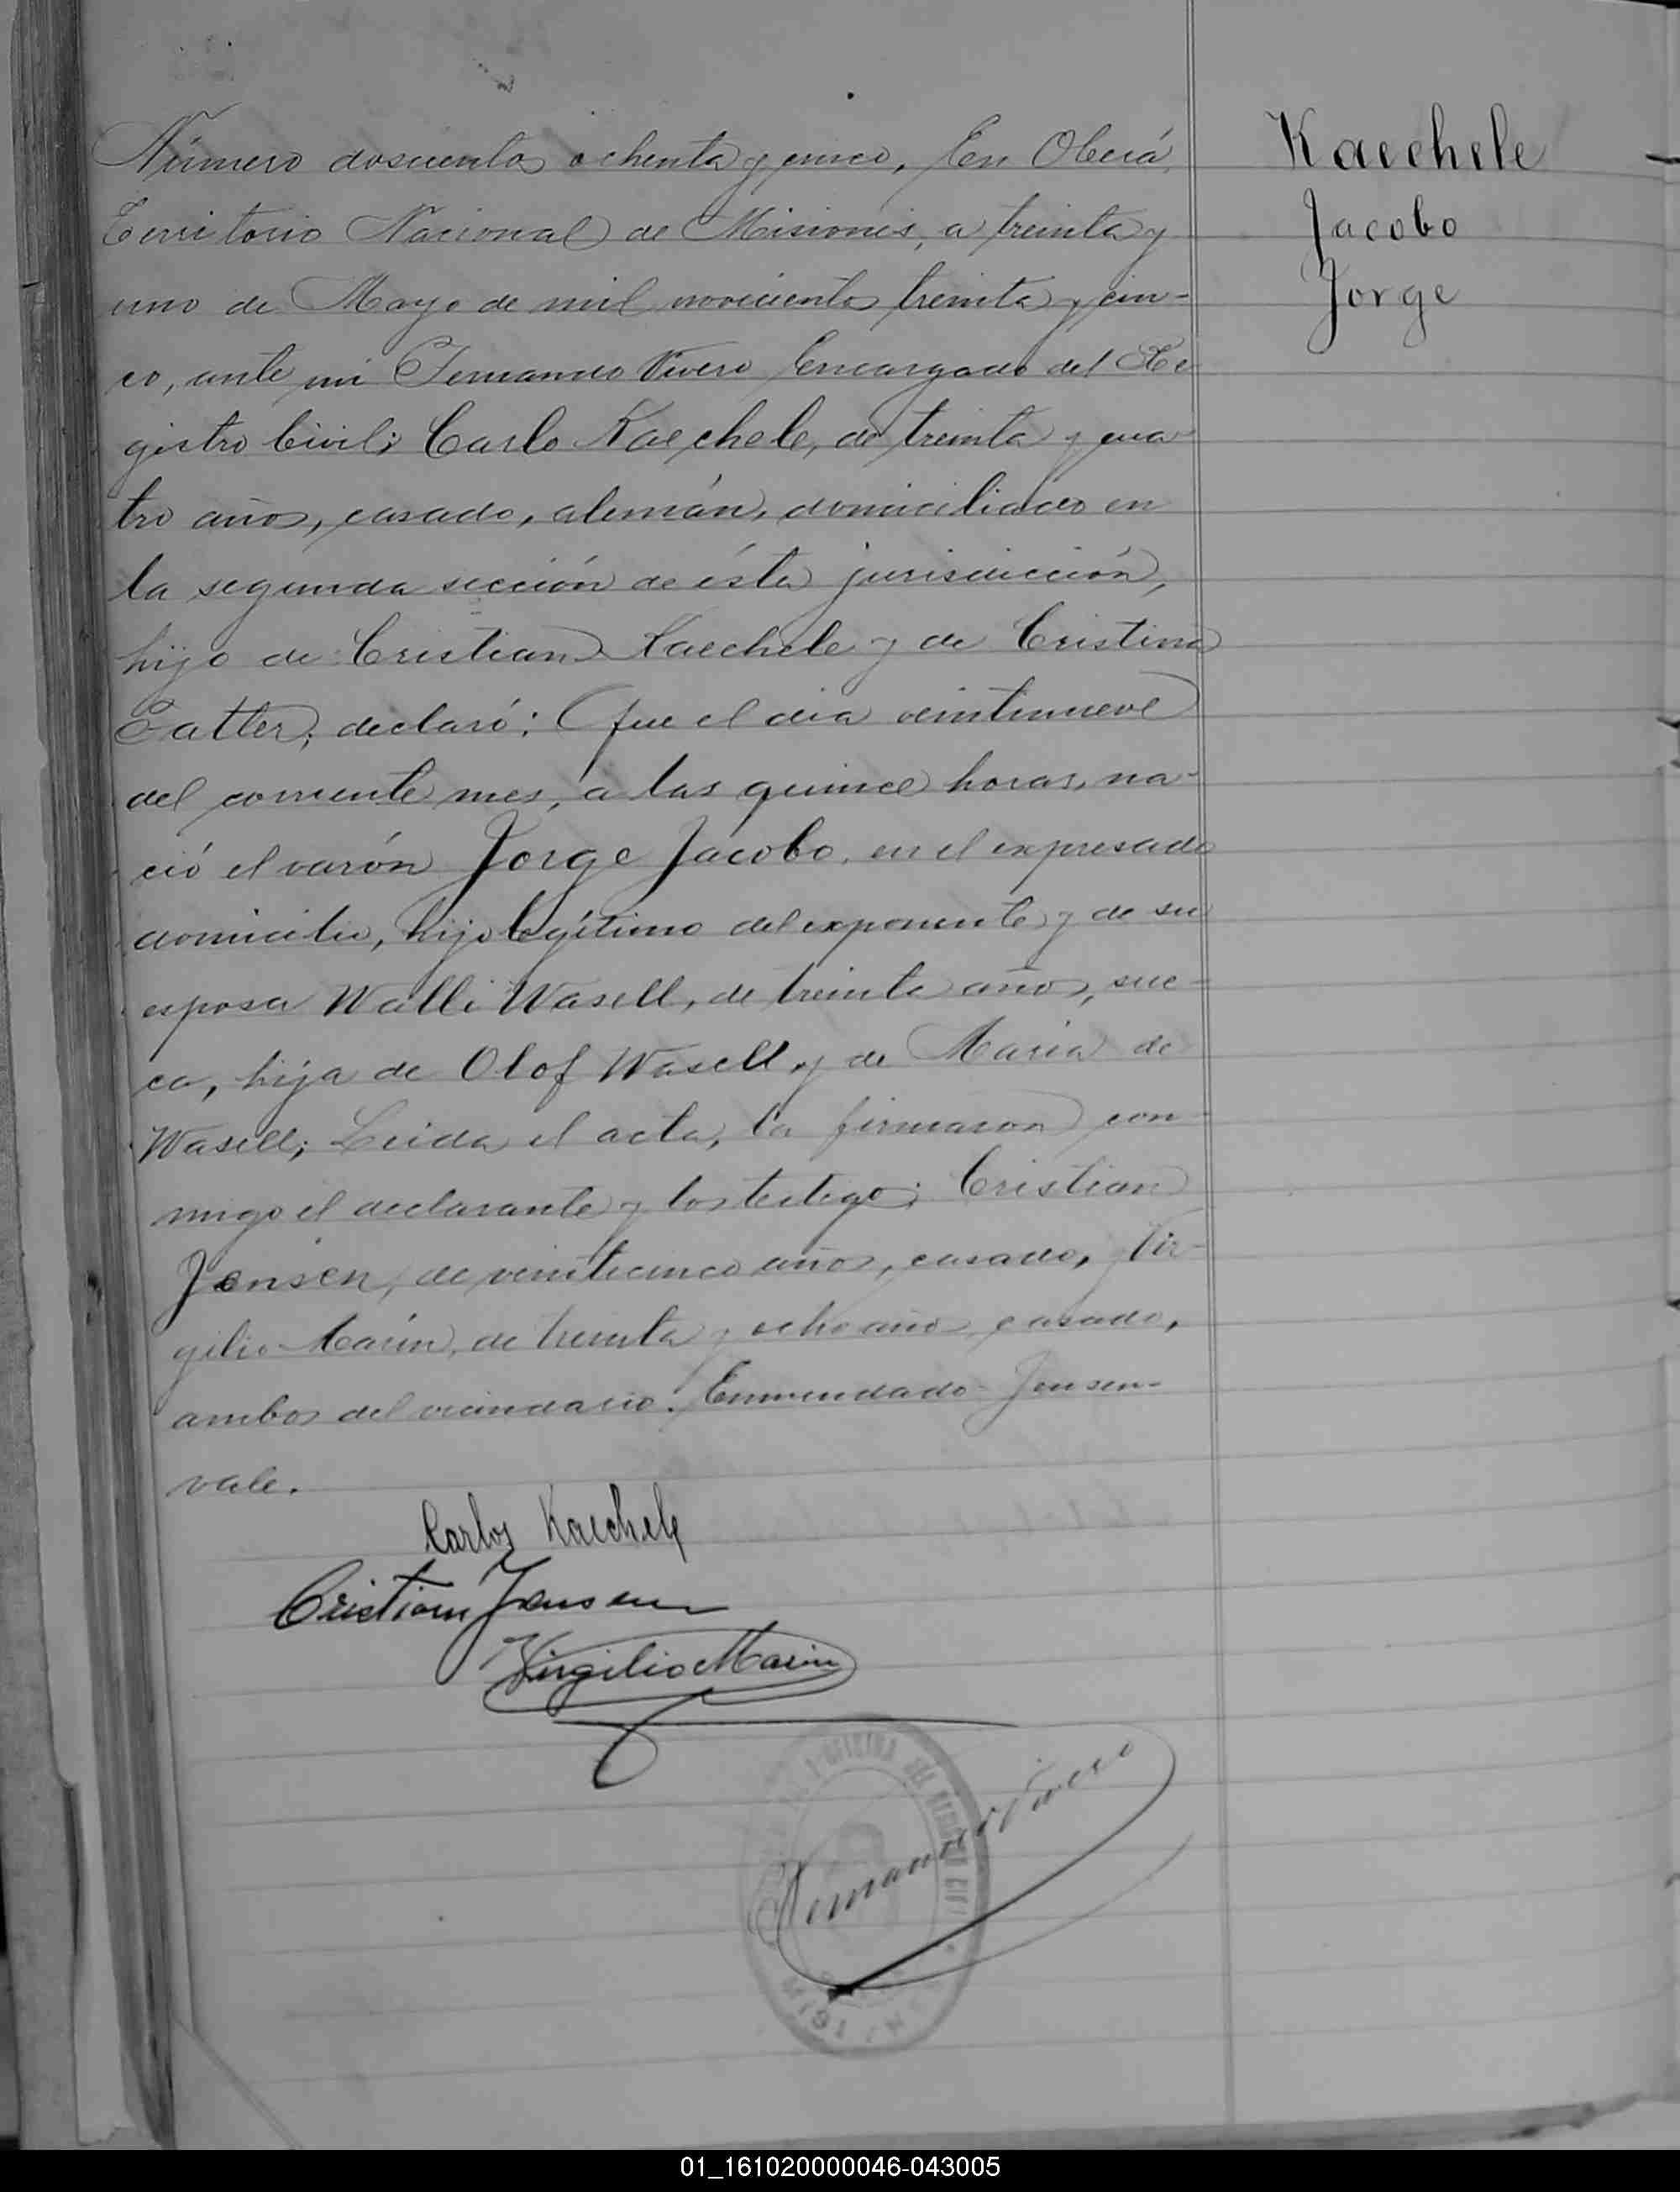 Número doscientos ochenta y cinco, En Oberá,
Territorio Nacional de Misiones, a treinta y
uno de Mayo de mil novecientos treinta y cin-
co, ante mi Fernando Vivero Encargado del Re
gistro Civil; Carlo Kaechele, de treinta y cua
tro años, casado, alemán, domiciliado en
la segunda sección de ésta jurisdicción,
hijo de Cristian Kaechele y de Cristina
declaró: Que el dia veintinueve
del corriente mes, á las quince horas, na-
ció el varón Jorge Jacobo, en el expresado
domicilio, hijo legítimo del exponente y de su
esposa Walli Wasell, de treinta años, sue-
ca, hija de Olof Wasell y de Maria de
Wasell; Leida el acta, la firmaron con-
migo el declarante y los testigos: Cristian
Jensen, de veinticinco años, casado, y Vir-
gilio Marin, de treinta y ocho años casado,
ambos del vecindario. Enmendado-Jensen-
vale.
Carlos Kaechele
Cristian Jensen
Virgilio Marin
Fernando Vivero
OFICINA DEL REGISTRO CIVIL
Kaechele
Jacobo
Jorge
01_161020000046-043005